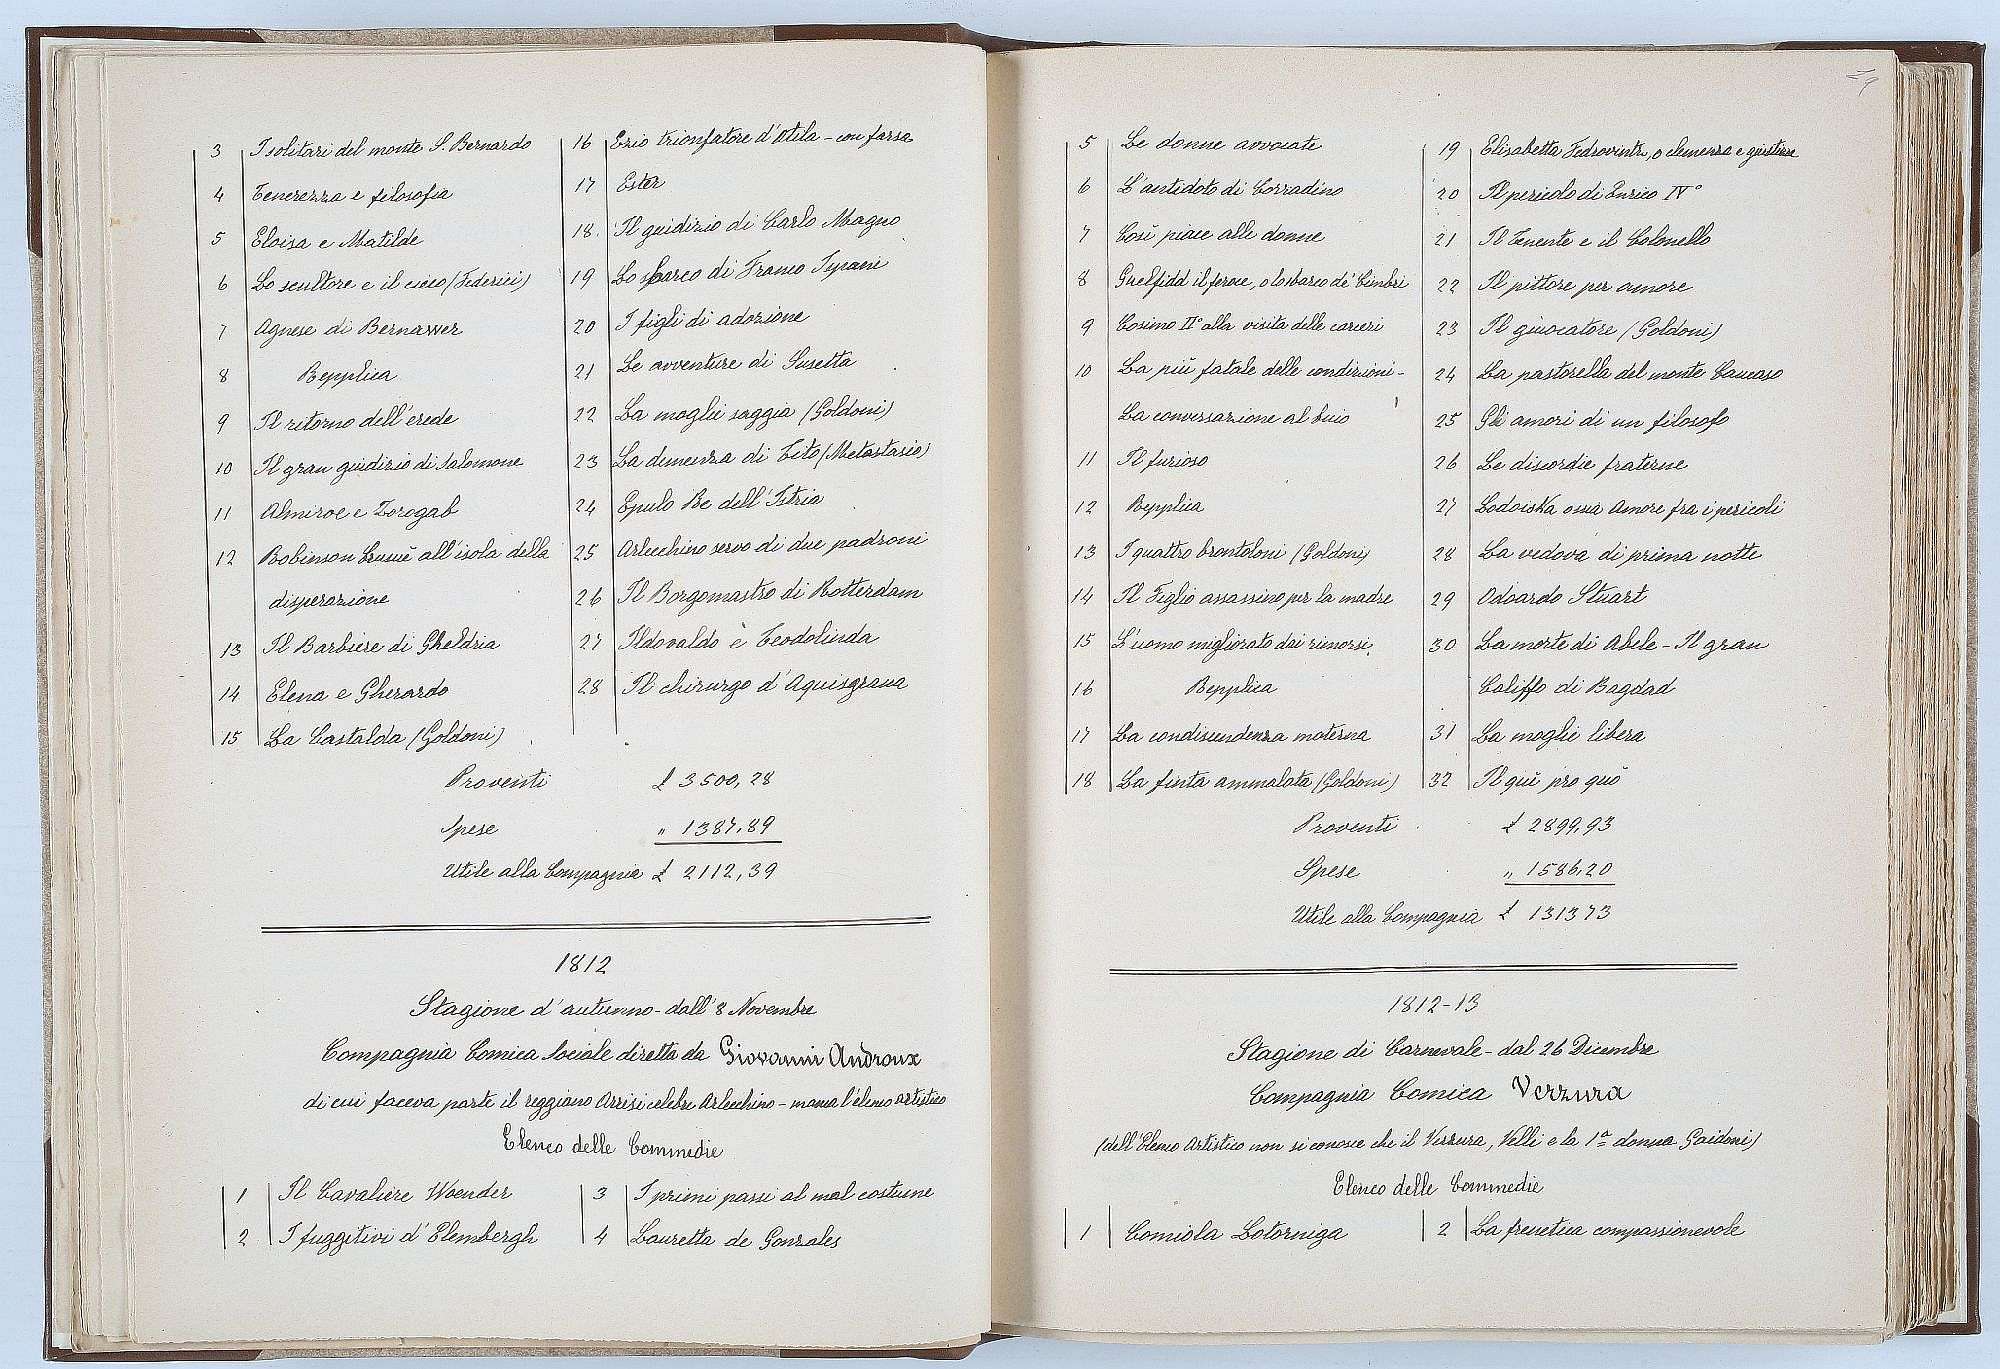 3 I solitari del monte S. Bernardo
4 Tenerezza e filosofia
5 Eloisa e Matilde
6 Lo scultore e il cieco (Federici)
7 Agnese di Bernawer
8 Repplica
9 Il ritorno dell'erede
10 Il gran giudizio di Salomone
11 Almiroe e Zorogab
12 Robinson Crusuè all'isola della
disperazione
13 Il Barbiere di Gheldria
14 Elena e Gherardo
15 La Castalda (Goldoni)
16 Ezio trionfatore d'Atila - con farsa
17 Ester
18. Il giudizio di Carlo Magno
19 Lo sbarco di Franco Sypani
20 I figli di adozione
21 Le avventure di Susetta
22 La moglie saggia (Goldoni)
23 La clemenza di Tito (Metastasio)
24 Epulo Re dell'Istria
25 Arlecchino servo di due padroni
26 Il Borgomastro di Rotterdam
27 Ildovaldo e Teodolinda
28 Il chirurgo d'Aquisgrana
Proventi £ 3500,28
Spese " 1387.89
Utile alla Compagnia £ 2112,39
1812
Stagione d'autunno - dall'8 Novembre
Compagnia Comica Sociale diretta da Giovanni Androux
di cui faceva parte il reggiano Arrisi celebre Arlecchino - manca l'elenco artistico
Elenco delle Commedie
1 Il Cavaliere Woender
2 I fuggitivi d'Elembergh
3 I primi passi al mal costume
4 Lauretta de Gonzales
5 Le donne avvocate
6 L'antidoto di Corradino
7 Così piace alle donne
8 Guelfidd il feroce, o lo sbarco de' Cimbri
9 Cosimo II° alla visita delle carceri
10 La più fatale delle condizioni -
La conversazione al buio
11 Il furioso
12 Repplica
13 I quattro brontoloni (Goldoni)
14 Il Figlio assassino per la madre
15 L'uomo migliorato dai rimorsi.
16 Repplica
17 La condiscendenza materna
18 La finta ammalata (Goldoni)
19 Elisabetta o clemenza e giustizia
20 Il pericolo di Enrico IV°
21 Il Tenente e il Colonello
22 Il pittore per amore
23 Il giuocatore (Goldoni)
24 La pastorella del monte Caucaso
25 Gli amori di un filosofo
26 Le discordie fraterne
27 Lodoiska ossia Amore fra i pericoli
28 La vedova di prima notte
29 Odoardo Stuart
30 La morte di Abele - Il gran
Califfo di Bagdad
31 La moglie libera
32 Il quì pro quò
Proventi £ 2899,93
Spese " 1586.20
Utile alla Compagnia £ 131373
1812-13
Stagione di Carnevale - dal 26 Dicembre
Compagnia Comica Verzura
(dell'Elenco Artistico non si conosce che il Verzura, Velli e la 1ª donna Gaidoni)
Elenco delle Commedie
1 Comiola Lotorniga
2 La frenetica compassionevole